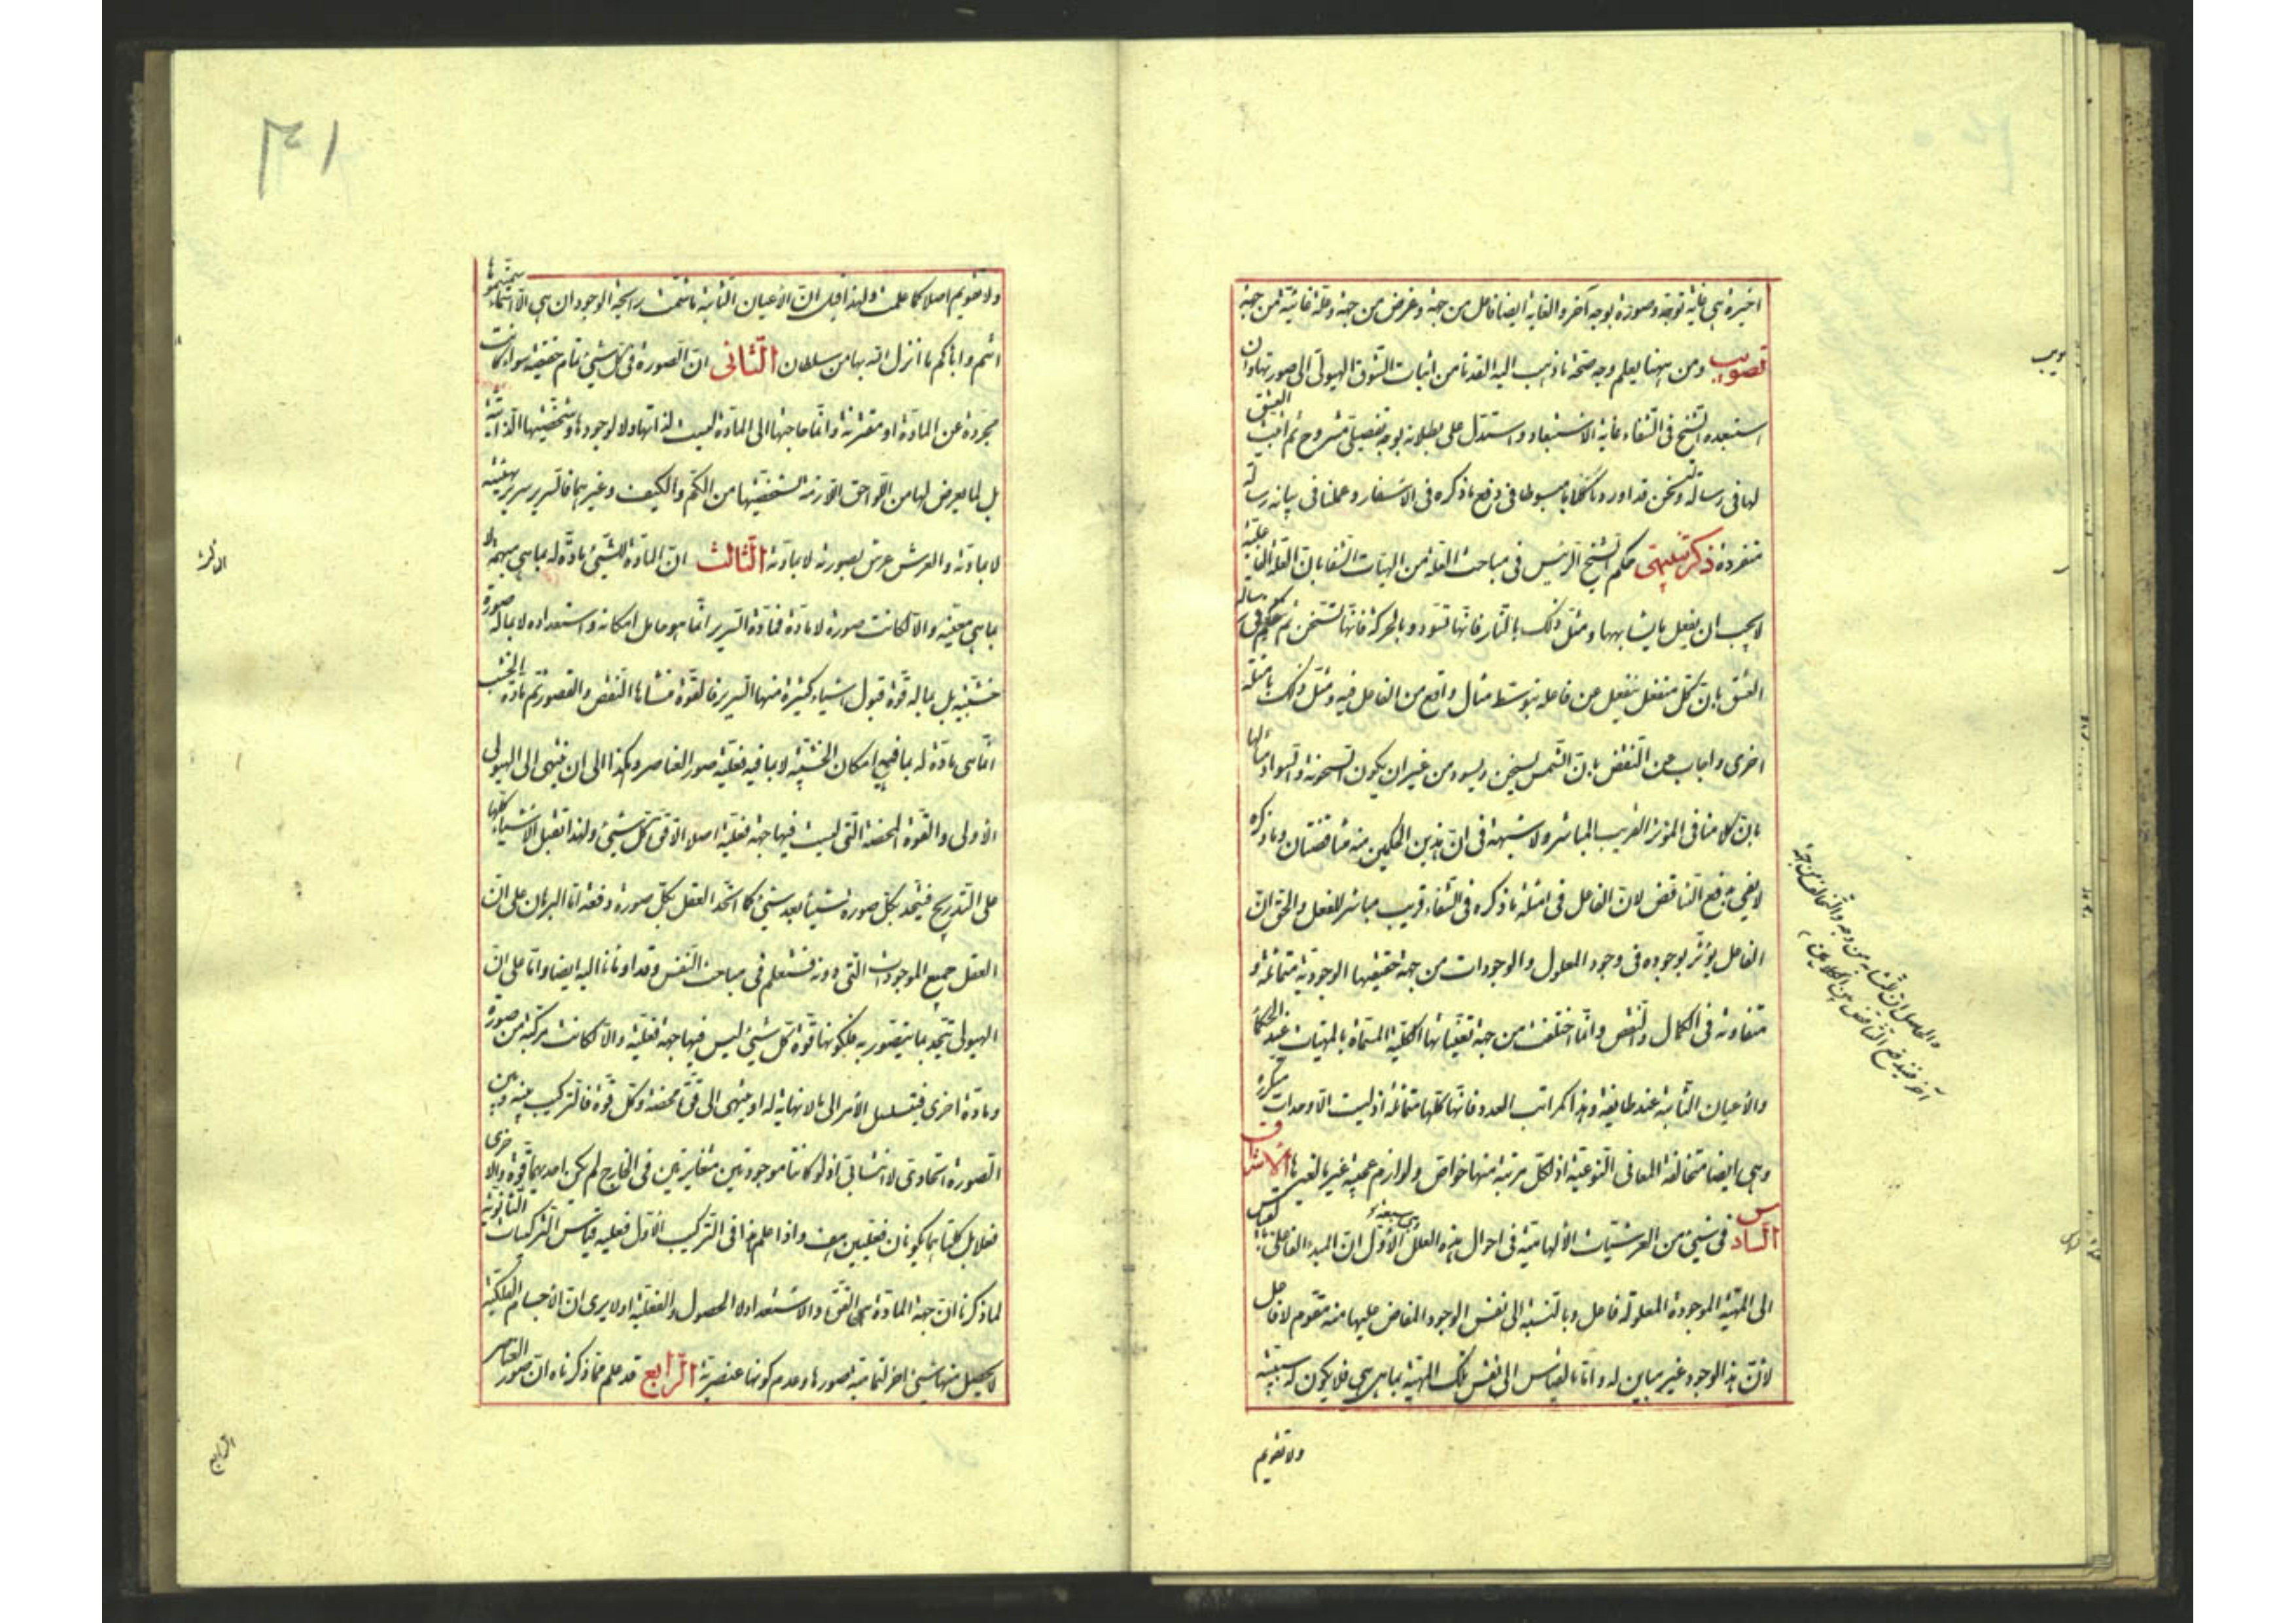 اخيرة هى غاية بوجه وصورة بوجه آخر والغاية ايضا فاعل من جهة وغرض من جهة وعلة غائية من جهة
تصويب ومن ههنا يعلم وجه صحة ما ذهب اليه القدماء من اثبات الشوق الهيولى الى صورتها وان
استبعده الشيخ فى الشفاء غاية الاستبعاد واستدل على بطلانه بوجه تفصيلى مشروح ثم اثبت العشق
لها فى رسالة ونحن قد اوردنا كلاما مبسوطا فى دفع ما ذكره فى الاسفار وعملنا فى بيانه رسالة
منفردة ذكر تنبيهى حكم الشيخ الرئيس فى مباحث العلة من الهيات الشفا بان العلة الفاعلية
لا يجب ان يفعل ما يشابهها ومثل ذلك بالنار فانها تسود وبالحركة فانها تسخن ثم حكم فى رسالة
العشق بان كل منفعل ينفعل عن فاعله بتوسط مثال واقع من الفاعل فيه ومثل ذلك بامثلة
اخرى واجاب عن النقض بان الشمس يسخن ويسود من غير ان يكون السخونة والسواد مثالها
بان كلامنا فى المؤثر القريب المباشر ولا شبهة فى ان هذين الحكمين منه متناقضتان وما ذكره
لا يفى بدفع التناقض لان الفاعل فى امثلة ما ذكره فى الشفاء قريب مباشر للفعل والحق ان
الفاعل يؤثر بوجوده فى وجود المعلول والوجودات من جهة حقيقتها الوجودية متماثلة و
متفاوتة فى الكمال والنقص وانما اختلفت من جهة تعيناتها الكلية المسماة بالمهيات عند الحكماء
والاعيان الثابتة عند طائفة وهذا كمراتب العدد فانها كلها متماثلة اذ ليست الا وحدات متكررة
وهى ايضا متخالفة المعانى النوعية اذ لكل مرتبة منها خواص ولوازم عجيبة غير ما لغيرها الاشراق
السادس فى شىء من العرشيات الالهامية فى احوال هذه العلل وهى سبعة الاول ان المبدء الفاعلى بالقياس
الى المهية الموجودة المعلولة فاعل وبالنسبة الى نفس الوجود المفاض عليها منه مقوم لا فاعل
لان هذا الوجود غير مباين له واما بالقياس الى نفس تلك المهية بما هى هى فلا يكون له سببية
ولا تقويم
والحاصل ان المشابهة من وجه والتخالف من جهة
اخرى فيندفع التناقض بين الكلامين
ولا تقويم اصلا كما علمت ولهذا قيل ان الاعيان الثابتة ما شمت رايحة الوجود ان هى الا اسماء سميتموها
انتم واباؤكم ما انزل الله بها من سلطان الثانى ان الصورة فى كل شىء تمام حقيقته سواء كانت
مجردة عن المادة او مقترنة وانما حاجتها الى المادة ليست لذاتها ولا لوجودها وشخصيتها الذاتية
بل لما يعرض لها من اللواحق اللازمة لشخصيتها من الكم والكيف وغيرهما فالسرير سرير بهيئته
لا بمادته والعرش عرش بصورته لا بمادته الثالث ان المادة للشىء مادة له بما هى مبهمة لا
بما هى معينة والا لكانت صورة لا مادة فمادة السرير انما هو حامل امكانه واستعداده لا بماله صورة
خشبية بل بماله قوة قبول اشياء كثيرة منها السرير فالقوة منشاها النقص والقصور ثم مادة الخشب
انما هى مادة له بما فيه امكان الخشبية لا بما فيه فعلية صور العناصر وهكذا الى ان ينتهى الى الهيولى
الاولى والقوة المحضة التى ليست فيها جهة فعلية اصلا الا قوة كل شىء ولهذا تقبل الاشياء كلها
على التدريج فيتحد بكل صورة شيئا بعد شىء كما اتحد العقل بكل صورة دفعة اما البرهان على ان
العقل جميع الموجودات التى دونه فستعلم فى مباحث النفس وقد اومانا اليه ايضا واما على ان
الهيولى تتحد بما يتصور به فلكونها قوة كل شىء ليس فيها جهة فعلية والا لكانت مركبة من صورة
ومادة اخرى فيتسلسل الامر الى ما لا نهاية له او ينتهى الى قوة محضة وكل قوة فالتركيب بينه وبين
الصورة اتحادى لا انضمامى اذ لو كانتا موجودتين متغايرتين فى الخارج لم يكن احديهما قوة والاخرى
فعلا بل كلتاهما يكونان فعليتين هف واذا علم هذا فى التركيب الاول فعليه قياس التركيبات الثانوية
لما ذكرنا ان جهة المادة هى القوة والاستعداد لا الحصول والفعلية او لا يرى ان الاجسام الفلكية
لا يحصل منها شىء اخر لتمامية صورها وعدم كونها عنصرية الرابع قد علم مما ذكرناه ان صور العناصر
الرابع
٣١